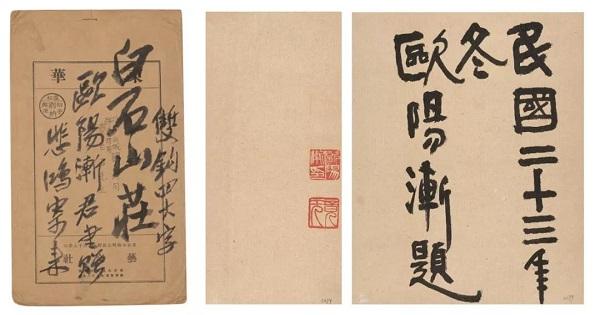 雙鉤四大字
白石山莊
歐陽漸君書贈
悲鴻寄來
華
社
民國二十三年
冬
歐陽漸題